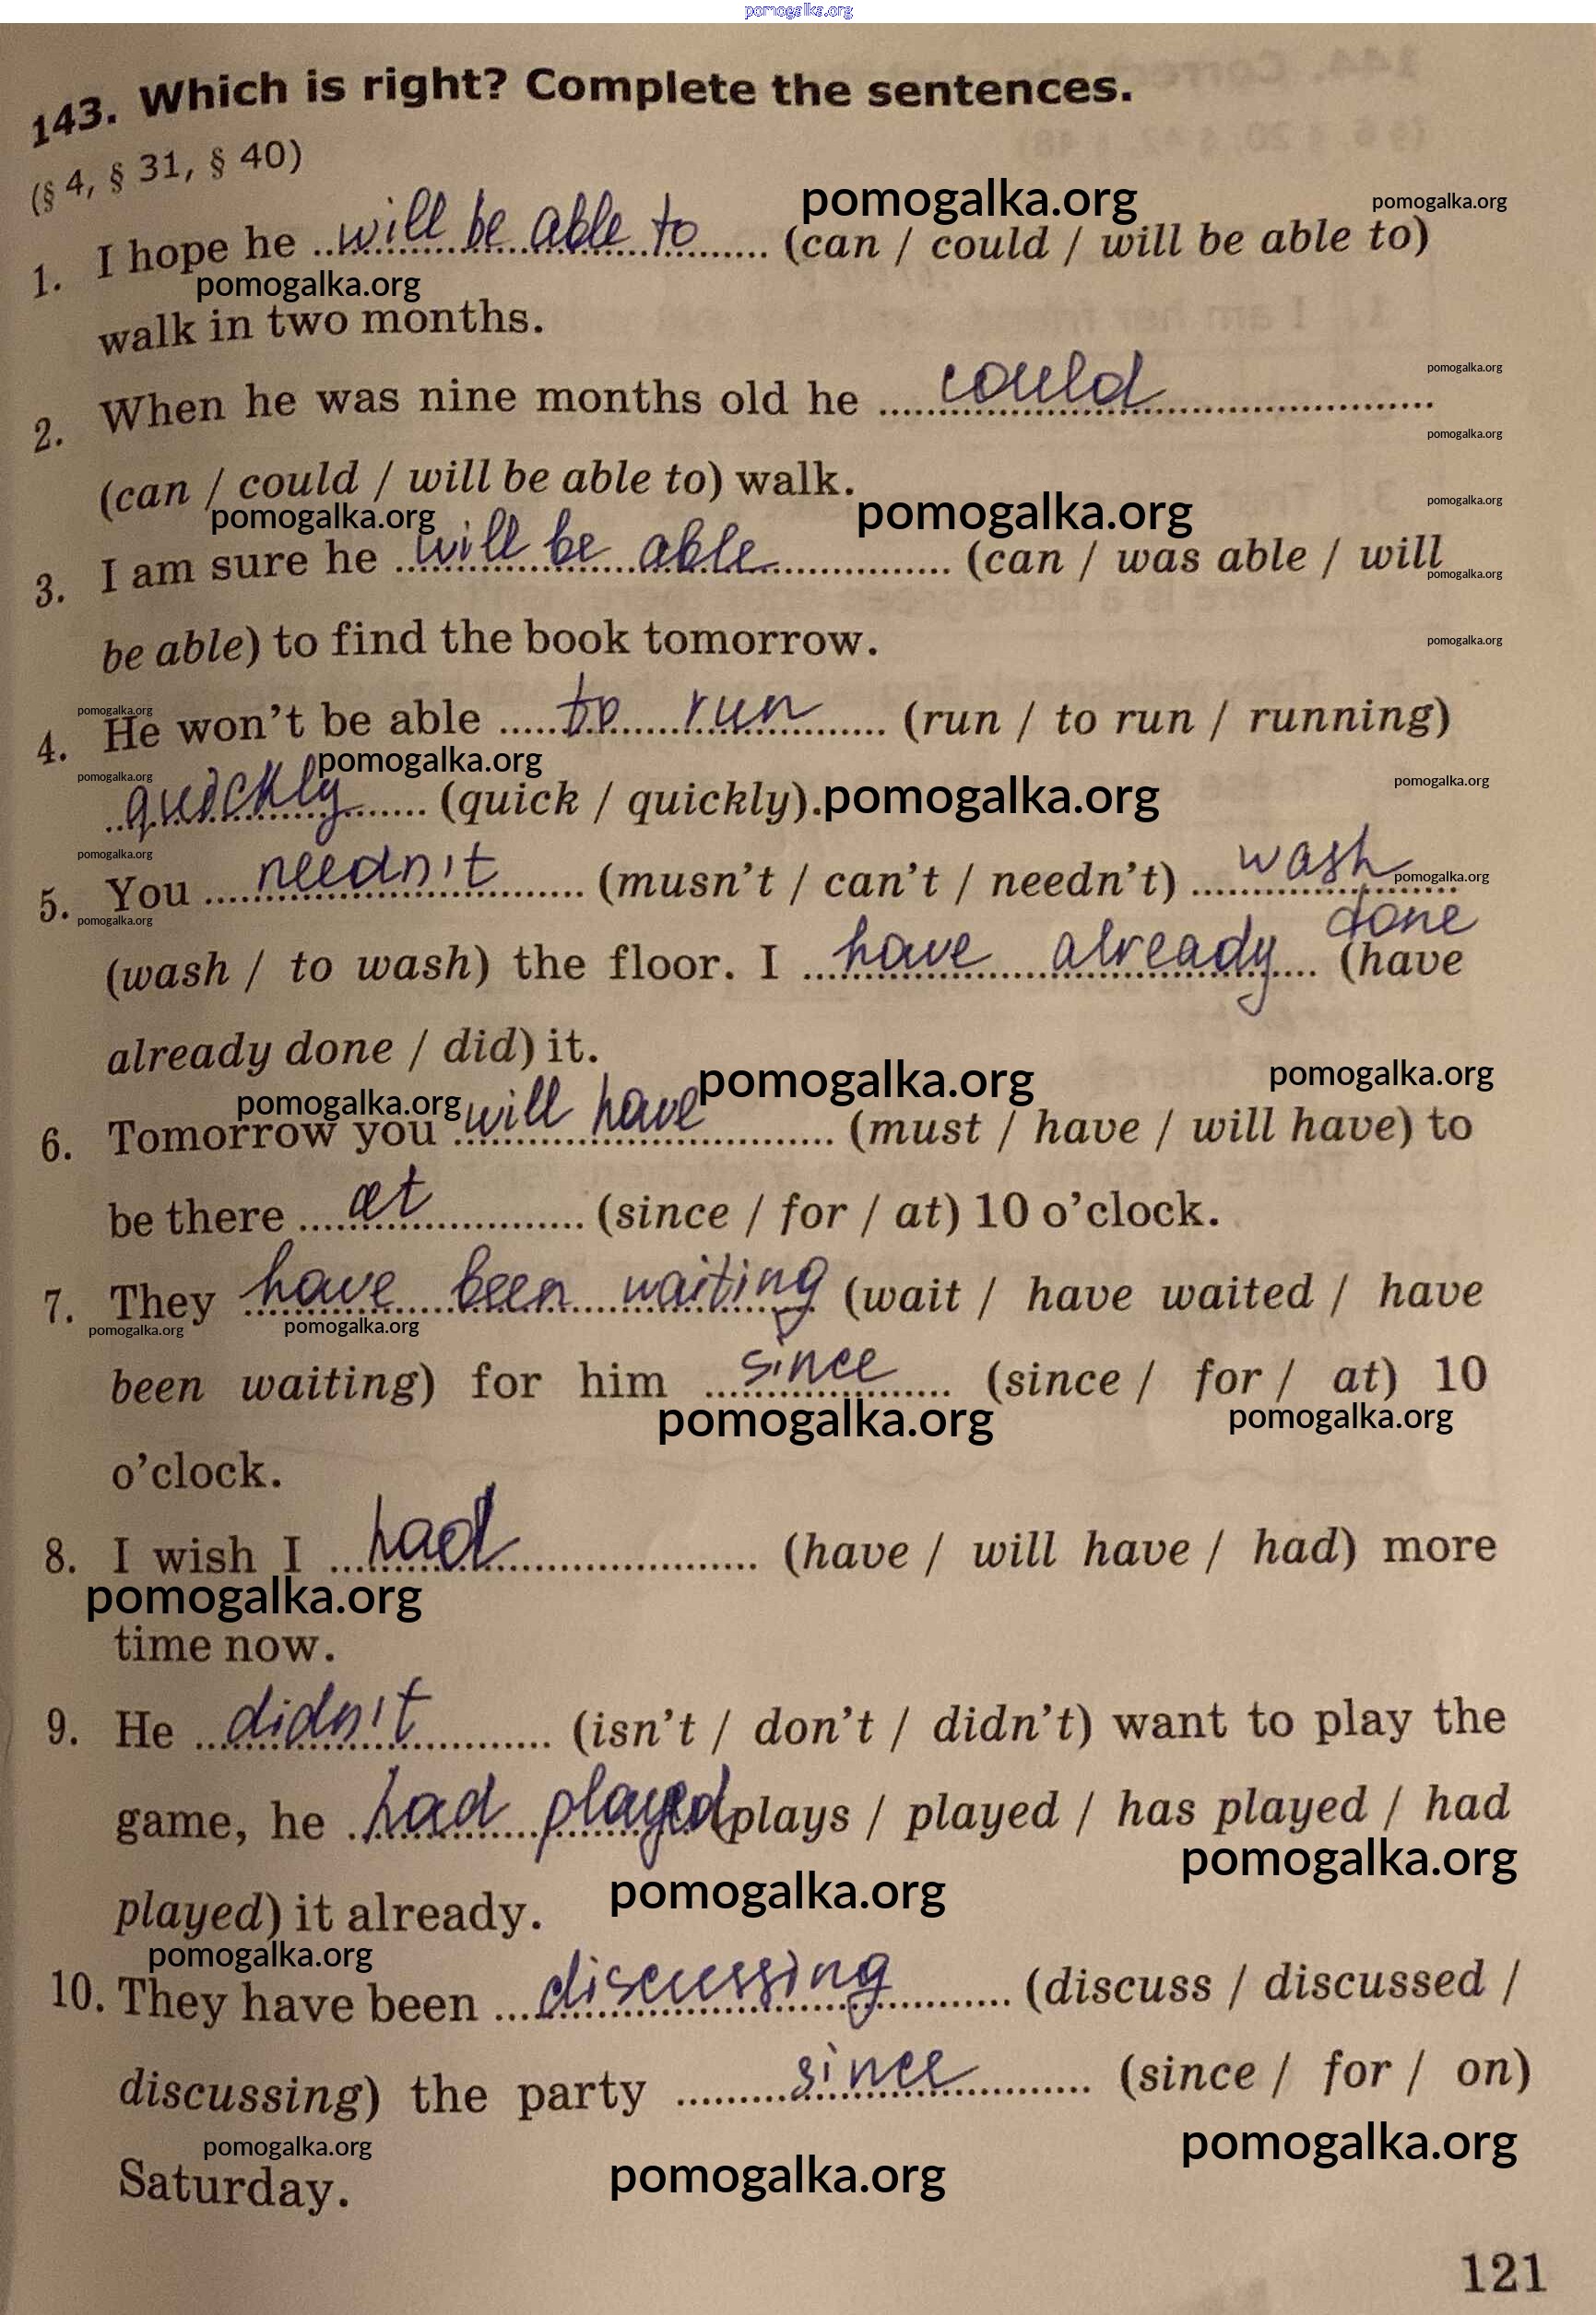 pomogalka.org
143. Which is right? Complete the sentences.
(§ 4, § 31, § 40)
pomogalka.org pomogalka.org
1. I hope he will be able to (can / could / will be able to)
pomogalka.org
walk in two months.
pomogalka.org
2. When he was nine months old he could
pomogalka.org
(can / could / will be able to) walk.
pomogalka.org pomogalka.org pomogalka.org
3. I am sure he will be able (can / was able / will
pomogalka.org
be able) to find the book tomorrow.
pomogalka.org
pomogalka.org
4. He won't be able to run (run / to run / running)
pomogalka.org pomogalka.org pomogalka.org
quickly (quick / quickly). pomogalka.org
pomogalka.org
5. You needn't (musn't / can't / needn't) wash
pomogalka.org pomogalka.org
(wash / to wash) the floor. I have already done (have
already done / did) it.
pomogalka.org pomogalka.org pomogalka.org
6. Tomorrow you will have (must / have / will have) to
be there at (since / for / at) 10 o'clock.
7. They have been waiting (wait / have waited / have
pomogalka.org pomogalka.org
been waiting) for him since (since / for / at) 10
pomogalka.org pomogalka.org
o'clock.
8. I wish I had (have / will have / had) more
pomogalka.org
time now.
9. He didn't (isn't / don't / didn't) want to play the
game, he had played (plays / played / has played / had
pomogalka.org pomogalka.org
played) it already.
pomogalka.org
10. They have been discussing (discuss / discussed /
discussing) the party since (since / for / on)
pomogalka.org pomogalka.org pomogalka.org
Saturday.
121